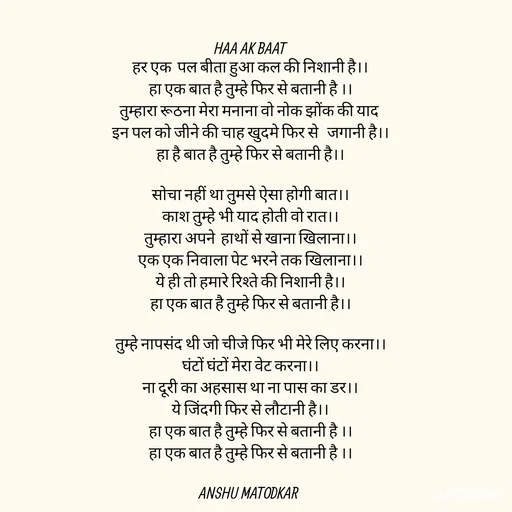 HAA AK BAAT
हर एक पल बीता हुआ कल की निशानी है।।
हा एक बात है तुम्हे फिर से बतानी है ।।
तुम्हारा रूठना मेरा मनाना वो नोक झोंक की याद
इन पल को जीने की चाह खुदमे फिर से जगानी है।।
हा है बात है तुम्हे फिर से बतानी है।।
सोचा नहीं था तुमसे ऐसा होगी बात।।
काश तुम्हे भी याद होती वो रात।।
तुम्हारा अपने हाथों से खाना खिलाना।।
एक एक निवाला पेट भरने तक खिलाना।।
ये ही तो हमारे रिश्ते की निशानी है।।
हा एक बात है तुम्हे फिर से बतानी है।।
तुम्हे नापसंद थी जो चीजे फिर भी मेरे लिए करना।।
घंटों घंटों मेरा वेट करना।।
ना दूरी का अहसास था ना पास का डर।।
ये जिंदगी फिर से लौटानी है।।
हा एक बात है तुम्हे फिर से बतानी है ।।
हा एक बात है तुम्हे फिर से बतानी है ।।
ANSHU MATODKAR